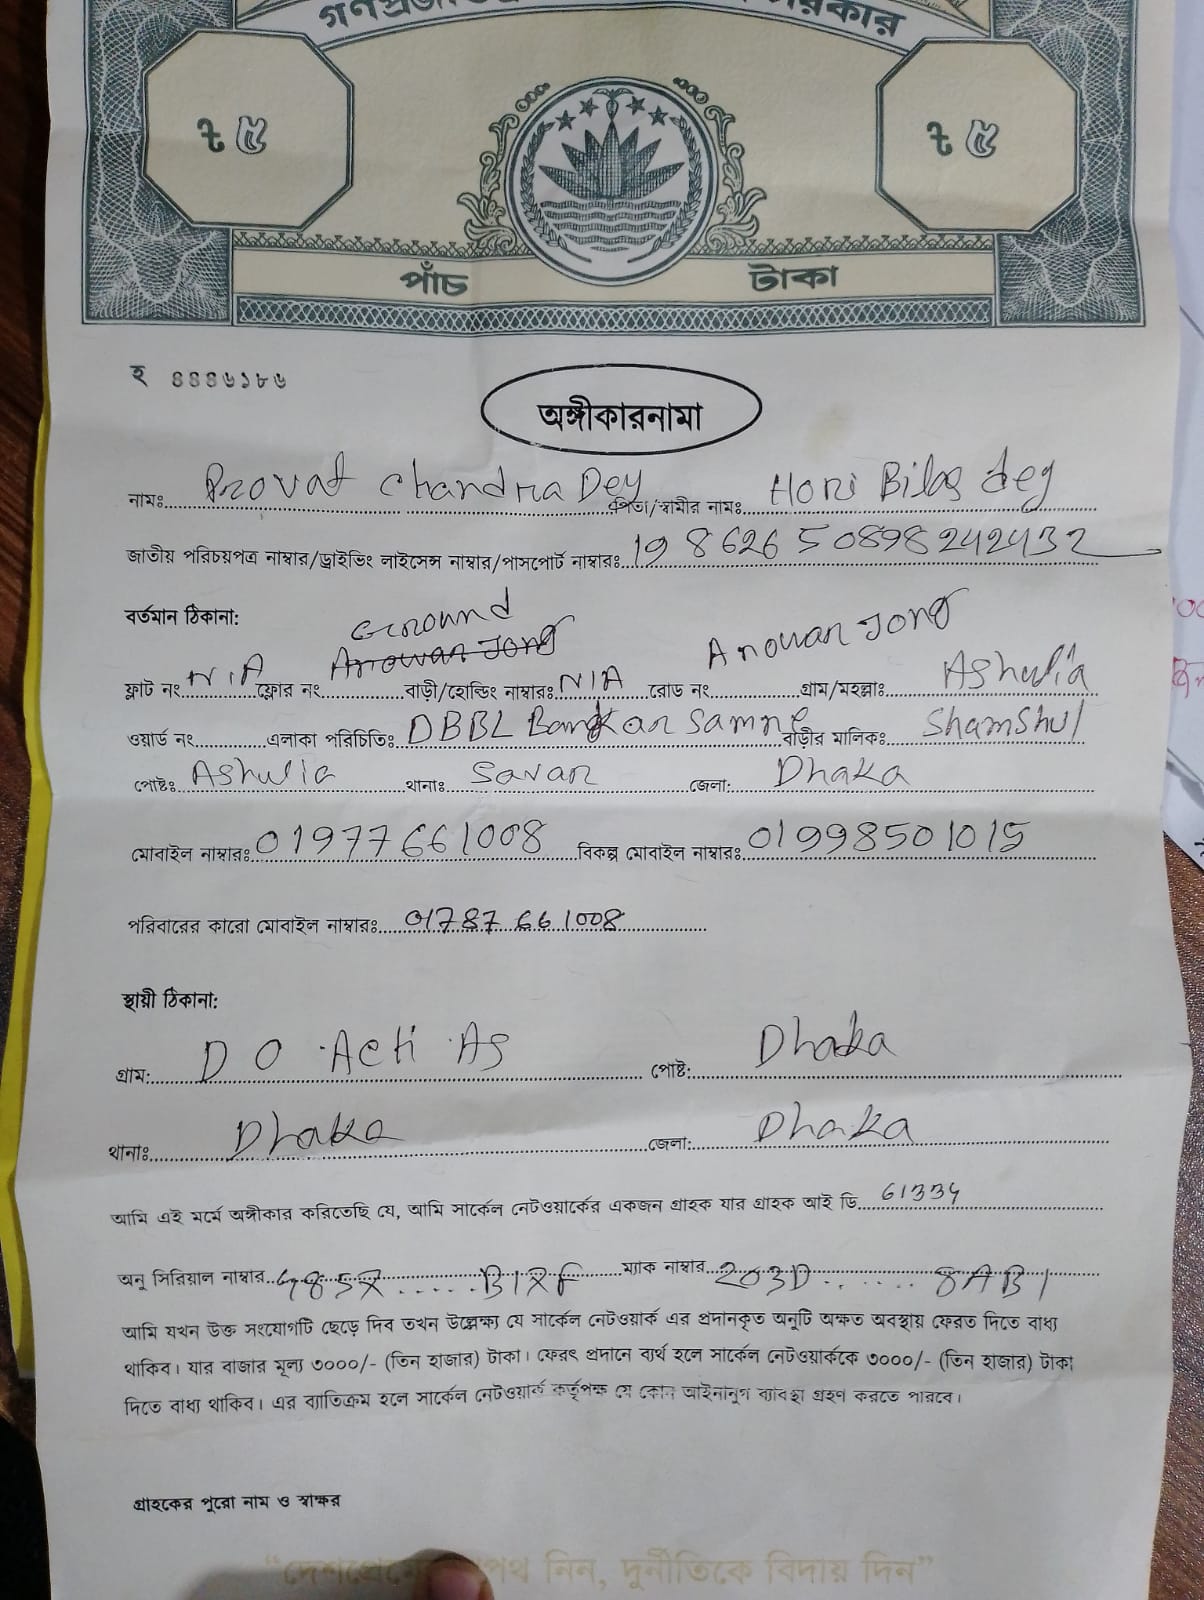 ৳ ৫ ৳ ৫
পাঁচ টাকা
হ ৪৪৪৬১৮৬
অঙ্গীকারনামা
নামঃ Provat Chandra Dey পিতা/স্বামীর নামঃ Hori Bilas dey
জাতীয় পরিচয়পত্র নাম্বার/ড্রাইভিং লাইসেন্স নাম্বার/পাসপোর্ট নাম্বারঃ 19862650898242432
বর্তমান ঠিকানা:
ফ্লাট নং N/A ফ্লোর নং Ground বাড়ী/হোল্ডিং নাম্বারঃ N/A রোড নং Anowar Jong গ্রাম/মহল্লাঃ Ashulia
ওয়ার্ড নং এলাকা পরিচিতিঃ DBBL Bank ar samne বাড়ীর মালিকঃ Shamshul
পোষ্টঃ Ashulia থানাঃ Savar জেলা: Dhaka
মোবাইল নাম্বারঃ 01977661008 বিকল্প মোবাইল নাম্বারঃ 01998501015
পরিবারের কারো মোবাইল নাম্বারঃ 01787661008
স্থায়ী ঠিকানা:
গ্রাম: D O পোষ্ট: Dhaka
থানাঃ Dhaka জেলা: Dhaka
আমি এই মর্মে অঙ্গীকার করিতেছি যে, আমি সার্কেল নেটওয়ার্কের একজন গ্রাহক যার গ্রাহক আই ডি 61334
অনু সিরিয়াল নাম্বার ম্যাক নাম্বার 203D...... 8AB1
আমি যখন উক্ত সংযোগটি ছেড়ে দিব তখন উল্লেক্ষ্য যে সার্কেল নেটওয়ার্ক এর প্রদানকৃত অনুটি অক্ষত অবস্থায় ফেরত দিতে বাধ্য
থাকিব। যার বাজার মূল্য ৩০০০/- (তিন হাজার) টাকা। ফেরৎ প্রদানে ব্যর্থ হলে সার্কেল নেটওয়ার্ককে ৩০০০/- (তিন হাজার) টাকা
দিতে বাধ্য থাকিব। এর ব্যতিক্রম হলে সার্কেল নেটওয়ার্ক কর্তৃপক্ষ যে কোন আইনানুগ ব্যাবস্থা গ্রহণ করতে পারবে।
গ্রাহকের পুরো নাম ও স্বাক্ষর
নিন, দুর্নীতিকে বিদায় দিন”